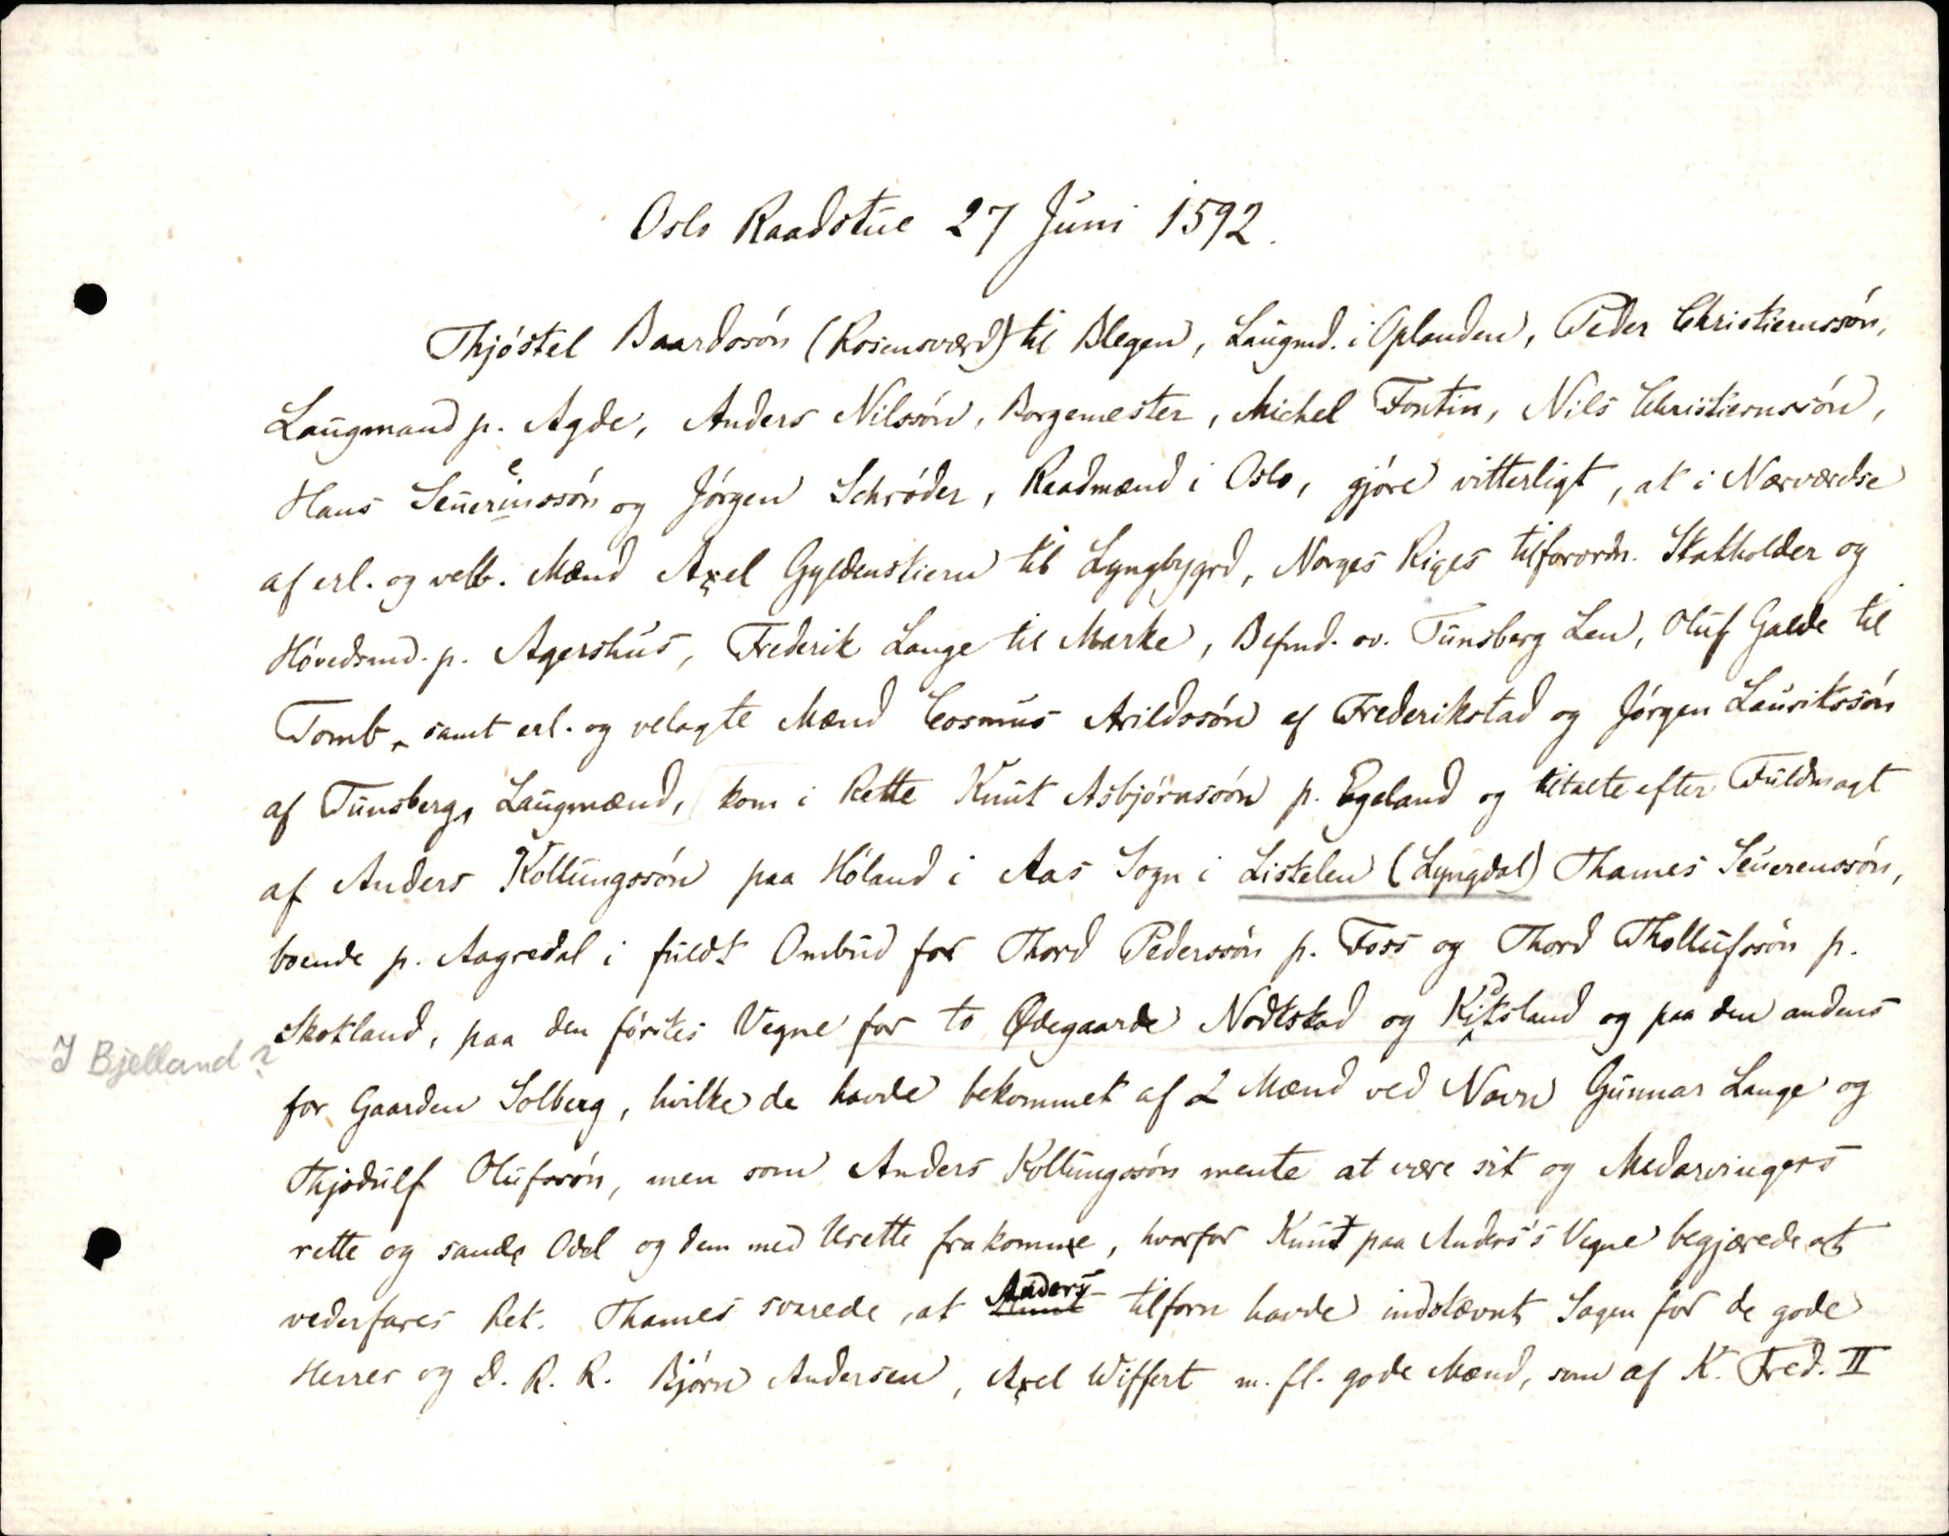 Oslo Raadstue 27 Juni 1592.
Thjóstel Baardssón (Rosensværd) til Blegen, Laugmd. i Oplanden, Peder Christiernssón,
Laugmand p. Agde, Anders Nilssón, Borgemester, Michel Fontin, Nils Christiernssón,
Hans Seuerinssón og Jórgen Schróder, Raadmænd i Oslo, gjóre vitterligt, at i Nærværelse
af erl. og velb. Mænd Axel Gyldenstiern til Lyngbygrd, Norges Riges tilforordn. Statholder og
Hóvedsmd. p. Agershus, Frederik Lange til Marke, Befmd. ov. Tunsberg Len, Oluf Galde til
Tomb, samt erl. og velagte Mænd Cosmus Arildssón af Frederikstad og Jórgen Lauritssón
af Tunsberg, Laugmænd, kom i Rette Knut Asbjórnssón p. Egeland og tiltalte efter Fuldmagt
af Anders Kollungssón paa Hóland i Aas Sogn i Listelen (Lyngdal) Thames Seuerenssón,
boende p. Aagredal i fuldt Ombud for Thord Pederssón p. Foss og Thord Thollufssón p.
Skotland, paa den fórstes Vegne for to Ødegaarde Nodtstad og Kidtsland og paa den andens
I Bjelland?
for Gaarden Solberg, hvilke de havde bekommet af 2 Mænd ved Navn Gunnar Lange og
Thjodulf Olufssón, men som Anders Kollungssón mente at være sit og Medarvingers
rette og sande Odel og dem med Urette frakomne, hvorfor Knut paa Anders's Vegne begjærede at
vederfares Ret. Thames svarede, at Anders tilforn havde indstævnt Sagen for de gode
Herrer og D. R. R. Bjórn Andersen, Axel Wiffert m. fl. gode Mænd, som af K. Fred. II